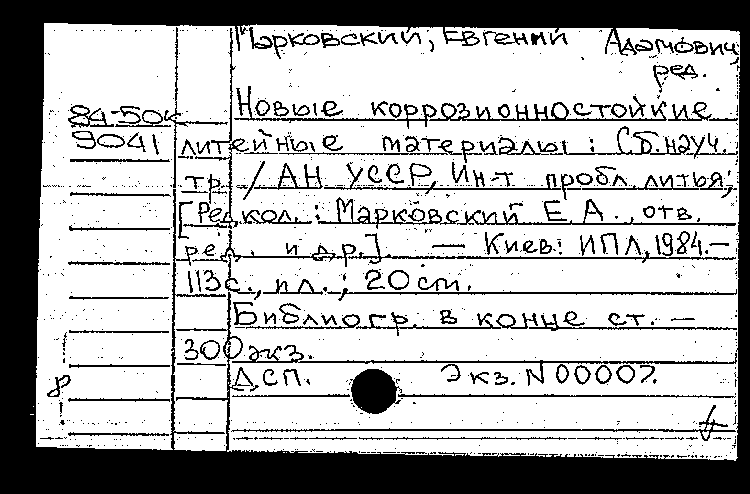 Марковский, Евгений Адамович,
ред.
84-50к
9041
Новые коррозионностойкие
литейные материалы : Сб. науч.
тр. / АН УССР, Ин-т пробл. литья;
[Редкол.: Марковский Е.А., отв.
ред. и др.]. — Киев: ИПЛ, 1984.—
113 с., ил.; 20 cm.
Библиогр. в конце ст. —
300 экз.
ДСП. Экз. N 00007.
8